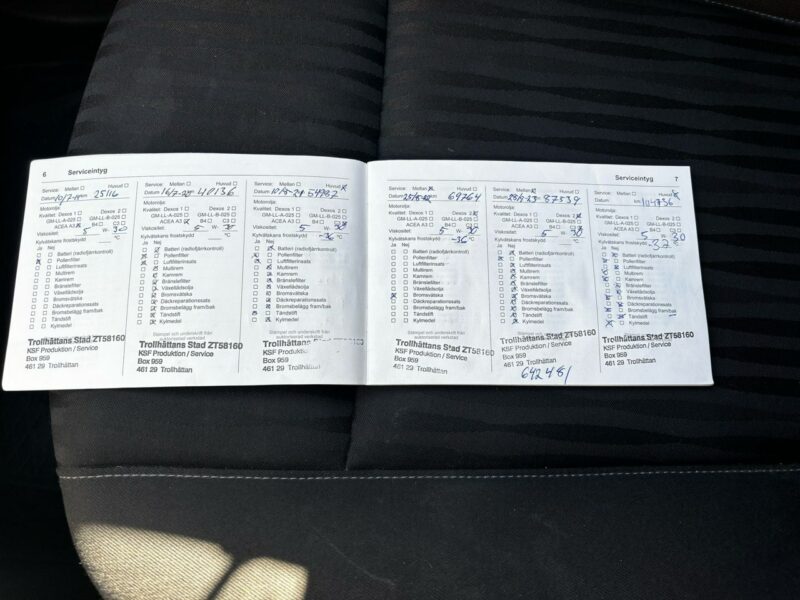 6 Serviceintyg
Service: Mellan Huvud
Datum 25116
Motorolja:
Kvalitet: Dexos 1 Dexos 2
GM-LL-A-025 GM-LL-B-025
ACEA A3 B4 C3
Viskositet: 5 W- 30
Kylvätskans frostskydd °C
Ja Nej
Batteri (radiofjärrkontroll)
Pollenfilter
Luftfilterinsats
Multirem
Kamrem
Bränslefilter
Växellådsolja
Bromsvätska
Däckreparationssats
Bromsbelägg fram/bak
Tändstift
Kylmedel
Trollhättans Stad ZT58160
KSF Produktion / Service
Box 959
461 29 Trollhättan
Service: Mellan Huvud
Datum 40136
Motorolja:
Kvalitet: Dexos 1 Dexos 2
GM-LL-A-025 GM-LL-B-025
ACEA A3 B4 C3
Viskositet: 5 W- 30
Kylvätskans frostskydd °C
Ja Nej
Batteri (radiofjärrkontroll)
Pollenfilter
Luftfilterinsats
Multirem
Kamrem
Bränslefilter
Växellådsolja
Bromsvätska
Däckreparationssats
Bromsbelägg fram/bak
Tändstift
Kylmedel
Trollhättans Stad ZT58160
KSF Produktion / Service
Box 959
461 29 Trollhättan
Service: Mellan Huvud
Datum
Motorolja:
Kvalitet: Dexos 1 Dexos 2
GM-LL-A-025 GM-LL-B-025
ACEA A3 B4 C3
Viskositet: 5 W- 30
Kylvätskans frostskydd -36 °C
Ja Nej
Batteri (radiofjärrkontroll)
Pollenfilter
Luftfilterinsats
Multirem
Kamrem
Bränslefilter
Växellådsolja
Bromsvätska
Däckreparationssats
Bromsbelägg fram/bak
Tändstift
Kylmedel
Stämpel och underskrift från
auktoriserad verkstad
Trollhättans
KSF Produktio
Box 959
461 29 Trollhättan
Serviceintyg 7
Service: Mellan Huvud
Datum 69764
Motorolja:
Kvalitet: Dexos 1 Dexos 2
GM-LL-A-025 GM-LL-B-025
ACEA A3 B4 C3
Viskositet: 5 W- 30
Kylvätskans frostskydd -36 °C
Ja Nej
Batteri (radiofjärrkontroll)
Pollenfilter
Luftfilterinsats
Multirem
Kamrem
Bränslefilter
Växellådsolja
Bromsvätska
Däckreparationssats
Bromsbelägg fram/bak
Tändstift
Kylmedel
Stämpel och underskrift från
auktoriserad verkstad
Trollhättans Stad ZT58160
KSF Produktion / Service
Box 959
461 29 Trollhättan
Service: Mellan Huvud
Datum 87539
Motorolja:
Kvalitet: Dexos 1 Dexos 2
GM-LL-A-025 GM-LL-B-025
ACEA A3 B4 C3
Viskositet: 5 W- 30
Kylvätskans frostskydd °C
Ja Nej
Batteri (radiofjärrkontroll)
Pollenfilter
Luftfilterinsats
Multirem
Kamrem
Bränslefilter
Växellådsolja
Bromsvätska
Däckreparationssats
Bromsbelägg fram/bak
Tändstift
Kylmedel
Trollhättans Stad ZT58160
KSF Produktion / Service
Box 959
461 29 Trollhättan
642481
Service: Mellan Huvud
Datum km 104736
Motorolja:
Kvalitet: Dexos 1 Dexos 2
GM-LL-A-025 GM-LL-B-025
ACEA A3 B4 C3
Viskositet: 5 W- 30
Kylvätskans frostskydd -37 °C
Ja Nej
Batteri (radiofjärrkontroll)
Pollenfilter
Luftfilterinsats
Multirem
Kamrem
Bränslefilter
Växellådsolja
Bromsvätska
Däckreparationssats
Bromsbelägg fram/bak
Tändstift
Kylmedel
Trollhättans Stad ZT58160
KSF Produktion / Service
Box 959
461 29 Trollhättan